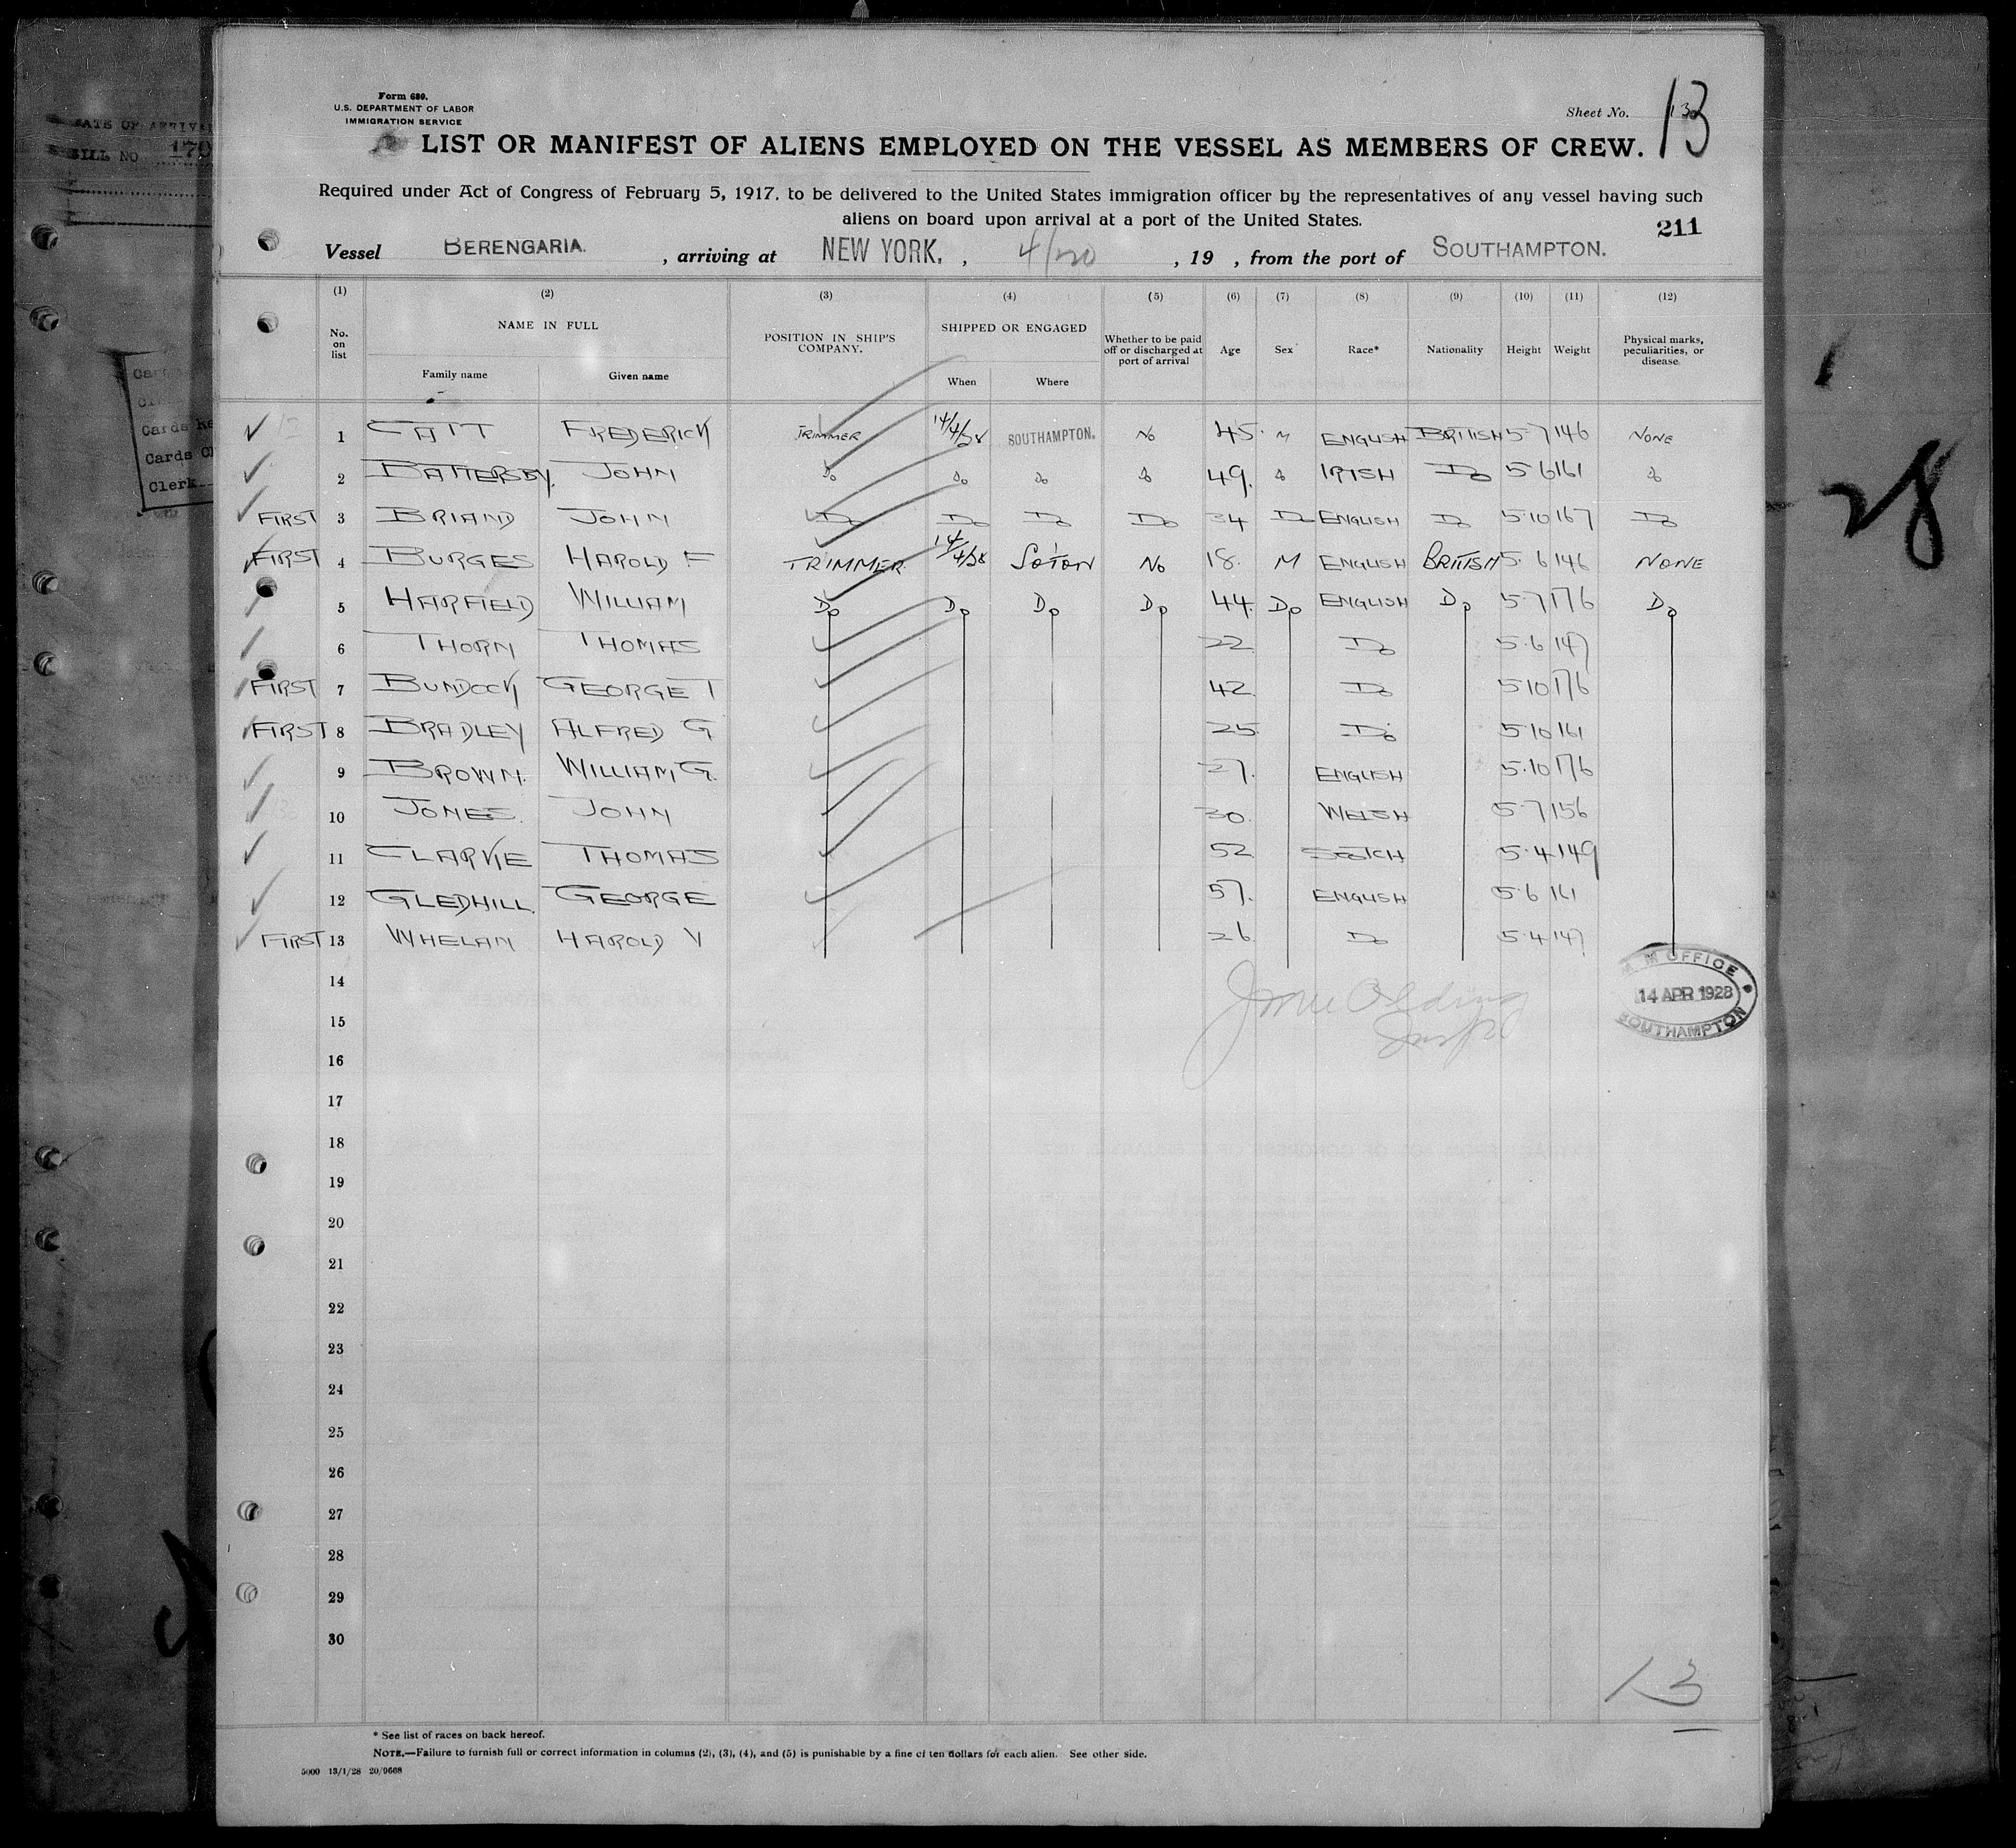 DATE OF ARRIVAL
BILL NO 170
Cards
Cards Ke
Cards Cl
Clerk
Form 680.
U.S. DEPARTMENT OF LABOR
IMMIGRATION SERVICE
Sheet No. 13
13
LIST OR MANIFEST OF ALIENS EMPLOYED ON THE VESSEL AS MEMBERS OF CREW.
Required under Act of Congress of February 5, 1917, to be delivered to the United States immigration officer by the representatives of any vessel having such
aliens on board upon arrival at a port of the United States.
211
Vessel BERENGARIA. , arriving at NEW YORK. , 4/20 , 19 , from the port of SOUTHAMPTON.
(1) (2) (3) (4) (5) (6) (7) (8) (9) (10) (11) (12)
No. on list NAME IN FULL Family name Given name POSITION IN SHIP'S COMPANY. SHIPPED OR ENGAGED When Where Whether to be paid off or discharged at port of arrival Age Sex Race* Nationality Height Weight Physical marks, peculiarities, or disease.
1 CATT FREDERICK TRIMMER 14/4/28 SOUTHAMPTON. No 45 M ENGLISH BRITISH 5-7 146 NONE
2 BATTERSBY. JOHN Do Do Do Do 49. Do IRISH Do 5 6 161 Do
FIRST 3 BRIAND JOHN Do Do Do Do 34 Do ENGLISH Do 5-10 167 Do
FIRST 4 BURGES HAROLD F TRIMMER. 14/4/28 So'TON No 18. M ENGLISH BRITISH 5.6 146 NONE
5 HARFIELD WILLIAM Do Do Do No 44. Do ENGLISH Do 5-7 176 Do
6 THORN THOMAS 22 Do 5.6 147
FIRST 7 BUNDOCK GEORGE T 42 Do 5 10 176
FIRST 8 BRADLEY ALFRED G 25 Do 5.10 161
9 BROWN. WILLIAM G. 27. ENGLISH 5.10 176
10 JONES. JOHN 30. WELSH 5-7 156
11 CLARKE THOMAS 52 SCOTCH 5.4 149
12 GLEDHILL. GEORGE 57. ENGLISH 5.6 161
FIRST 13 WHELAN HAROLD V 26 Do 5.4 147
14
M.M OFFICE
14 APR 1928
SOUTHAMPTON
15
16
17
18
19
20
21
22
23
24
25
26
27
28
29
30
13
28
* See list of races on back hereof.
NOTE.—Failure to furnish full or correct information in columns (2), (3), (4), and (5) is punishable by a fine of ten dollars for each alien. See other side.
5000 13/1/28 20/9668